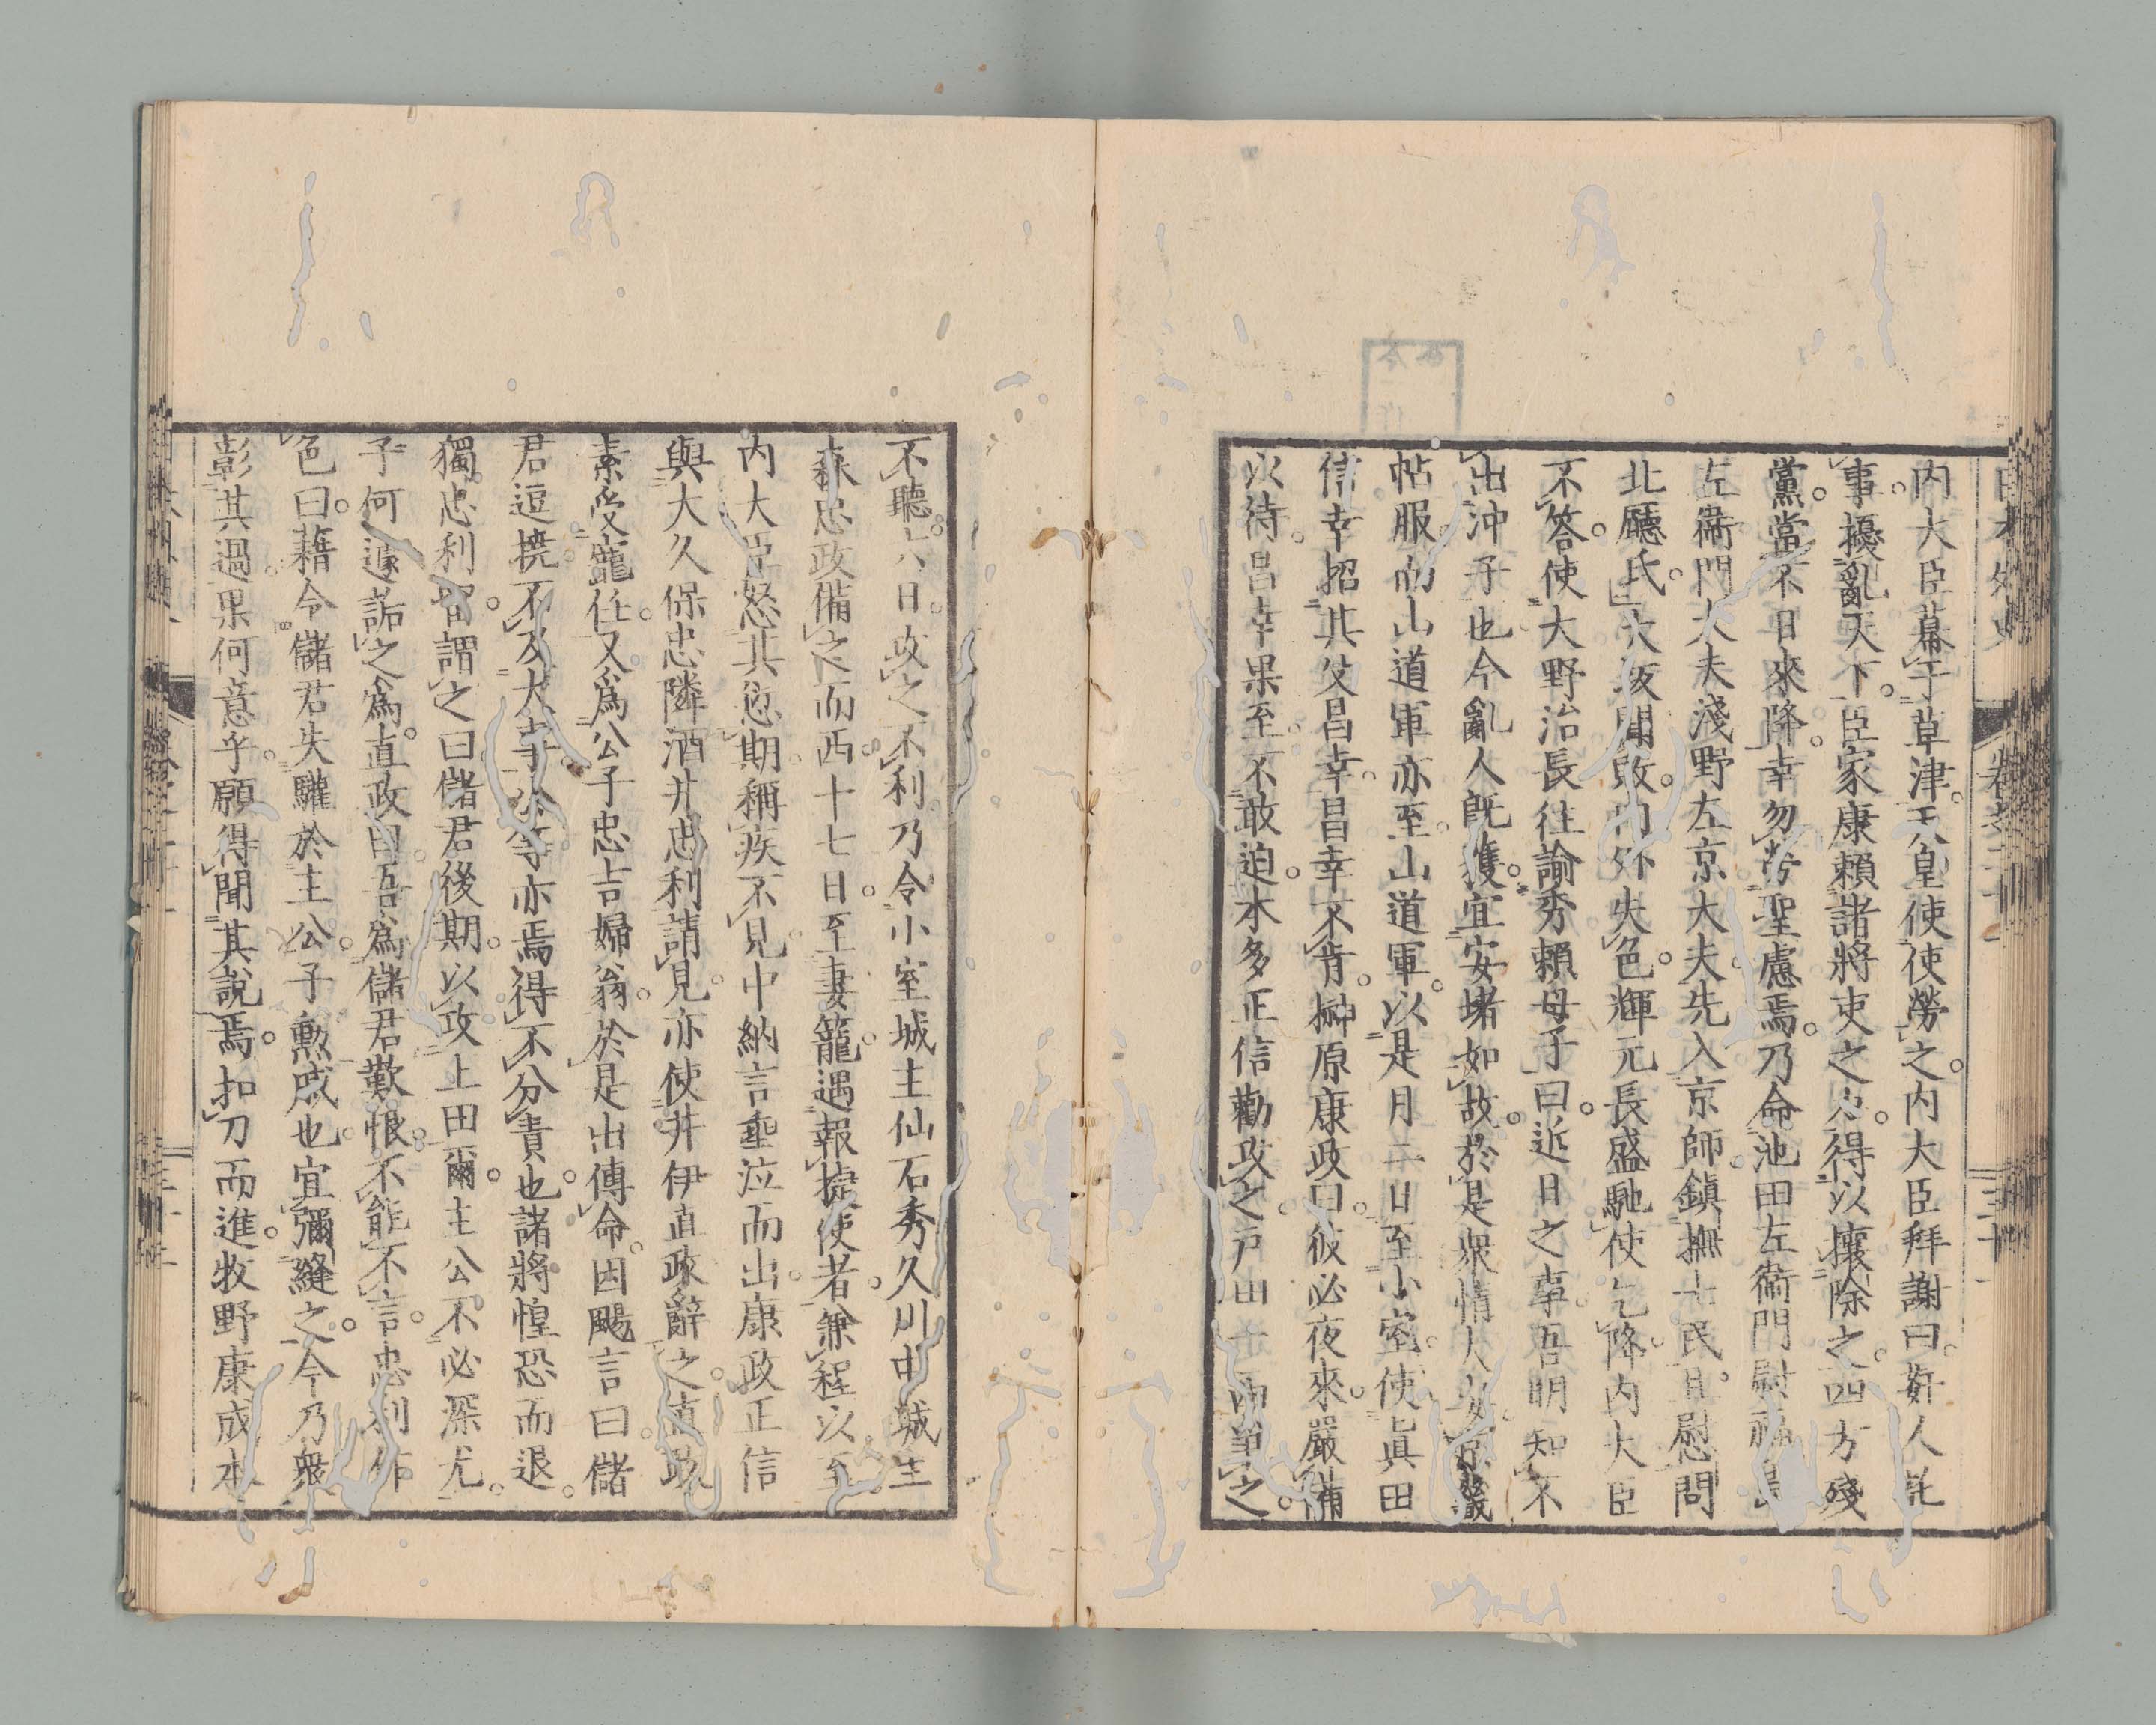 日本外史 卷之二十一
內大臣幕于草津天皇使使勞之內大臣拜謝曰姦人託
事擾亂天下臣家康賴諸將吏之力得以攘除之四方殘
黨當不日來降幸勿勞聖慮焉乃命池田左衞門尉福島
左衞門大夫淺野左京大夫先入京師鎭撫士民且慰問
北廳氏大坂聞敗內外失色輝元長盛馳使乞降內大臣
不答使大野治長往諭秀賴母子曰近日之事吾明知不
出冲子也今亂人旣獲宜安堵如故於是衆情大安京畿
帖服而山道軍亦至山道軍以是月二日至小室使眞田
信幸招其父昌幸昌幸不肯榊原康政曰彼必夜來嚴備
以待昌幸果至不敢迫本多正信勸攻之戸田一西爭之
不聽六日攻之不利乃令小室城主仙石秀久川中城主
森忠政備之而西十七日至妻籠遇報捷使者兼程以至
內大臣怒其愆期稱疾不見中納言垂泣而出康政正信
與大久保忠隣酒井忠利請見亦使井伊直政辭之直政
素受寵任又爲公子忠吉婦翁於是出傳命因颺言曰儲
君逗撓不及大事公等亦焉得不分責也諸將惶恐而退
獨忠利留謂之曰儲君後期以攻上田爾主公不必深尤
子何遽詬之爲直政曰吾爲儲君歎恨不能不言忠利作
色曰藉令儲君失驩於主公子勲戚也宜彌縫之今乃衆
彰其過果何意乎願得聞其說焉扣刀而進牧野康成本